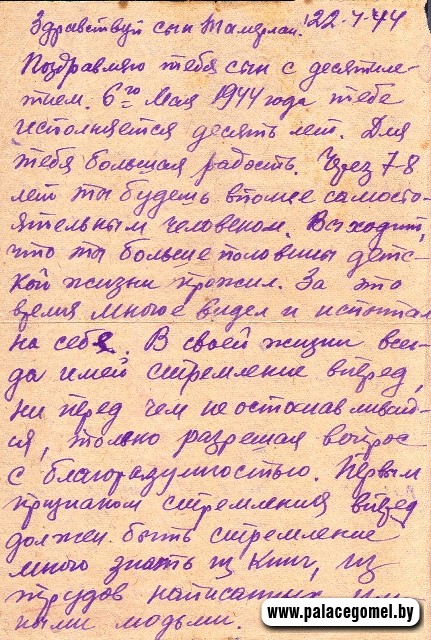 Здравствуй сын Тамерлан! 22-4-44
Поздравляю тебя сын с десятиле-
тием. 6го Мая 1944 года тебе
исполняется десять лет. Для
тебя большая радость. Через 7-8
лет ты будешь вполне самосто-
ятельным человеком. Выходит,
что ты больше половины детс-
кой жизни прожил. За это
время многое видел и испытал
на себе. В своей жизни всег-
да имей стремление вперед,
ни перед чем не останавливай-
ся, только разрешая вопрос
с благоразумностью. Первым
признаком стремления вперед
должен быть стремление
много знать из книг, из
трудов написанных
ными людьми.
www.palacegomel.by